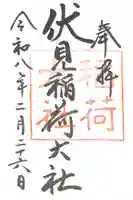 奉拝
伏見稲荷大社
令和八年二月二十六日